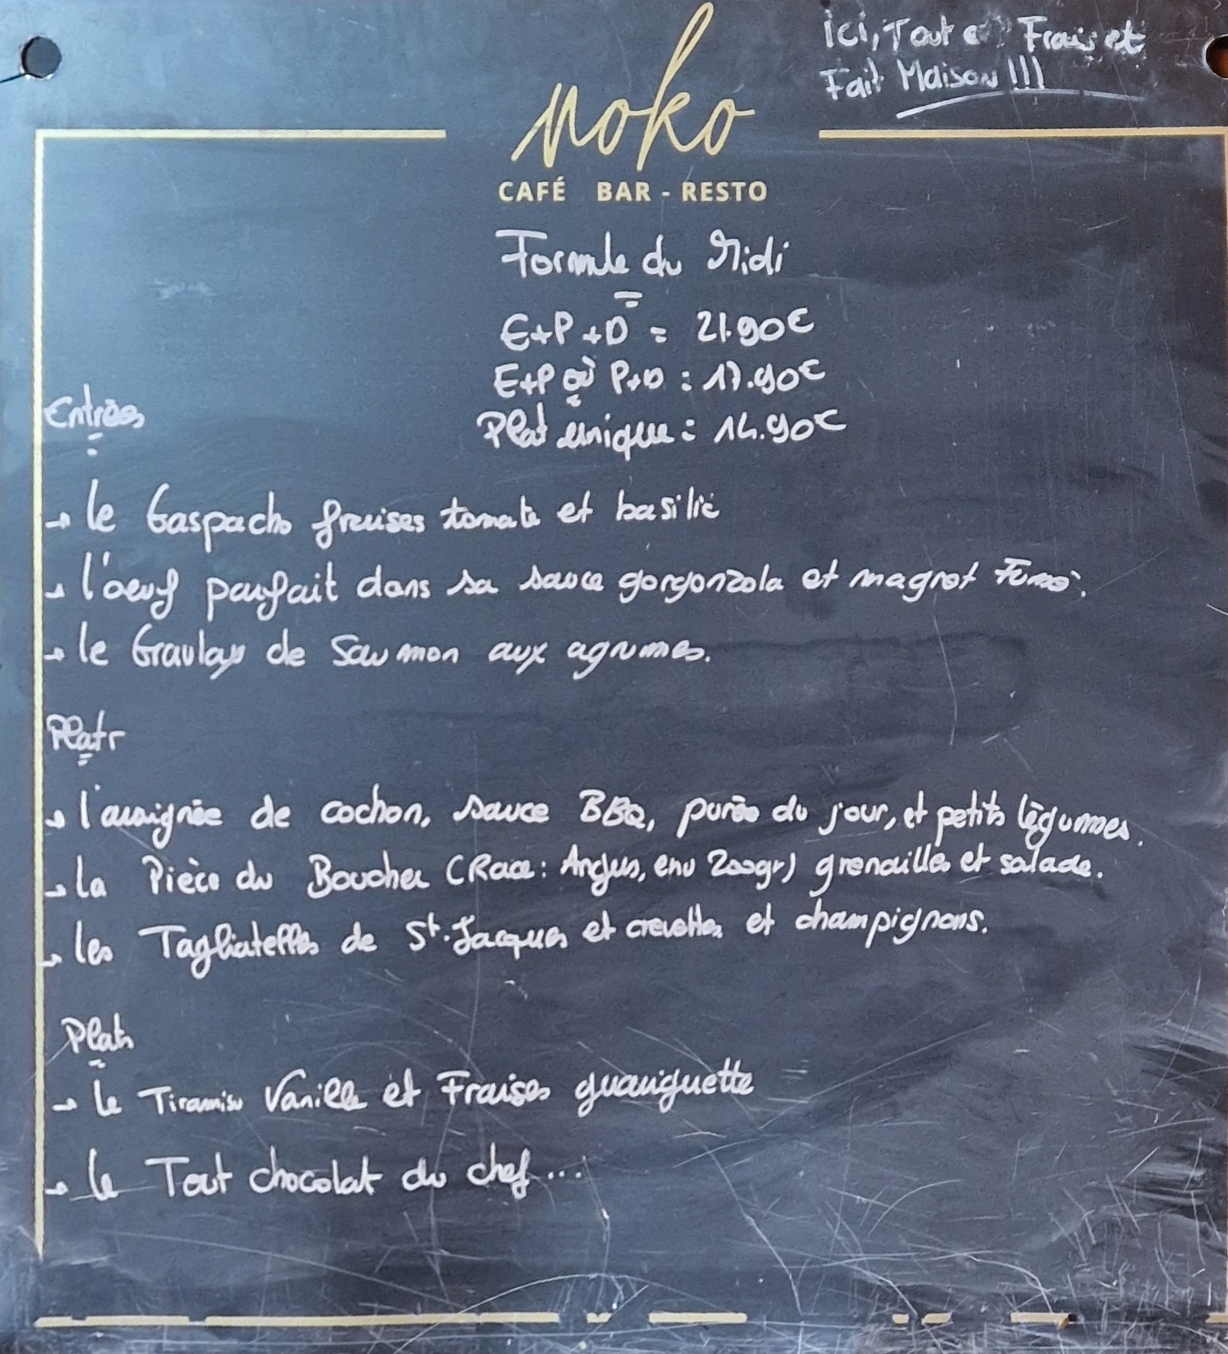 ici, Tout e Frais et
Fait Maison !!!
noko
CAFÉ BAR - RESTO
Formule du Midi
E+P+D = 21.90€
E+P où P+D : 17.90€
Plat unique : 14.90€
Entrées
→ le Gaspacho fraises tomate et basilic
→ l'oeuf parfait dans sa sauce gorgonzola et magret Fumé.
→ le Gravlax de Saumon aux agrumes.
Plats
→ l'araignée de cochon, sauce BBQ, purée du jour, et petits légumes.
→ la Pièce du Boucher (Race : Angus, env 200gr) grenailles et salade.
→ les Tagliatelles de St-Jacques et crevettes et champignons.
Plats
→ le Tiramisu Vanille et Fraises guariguette
→ le Tout chocolat du chef...